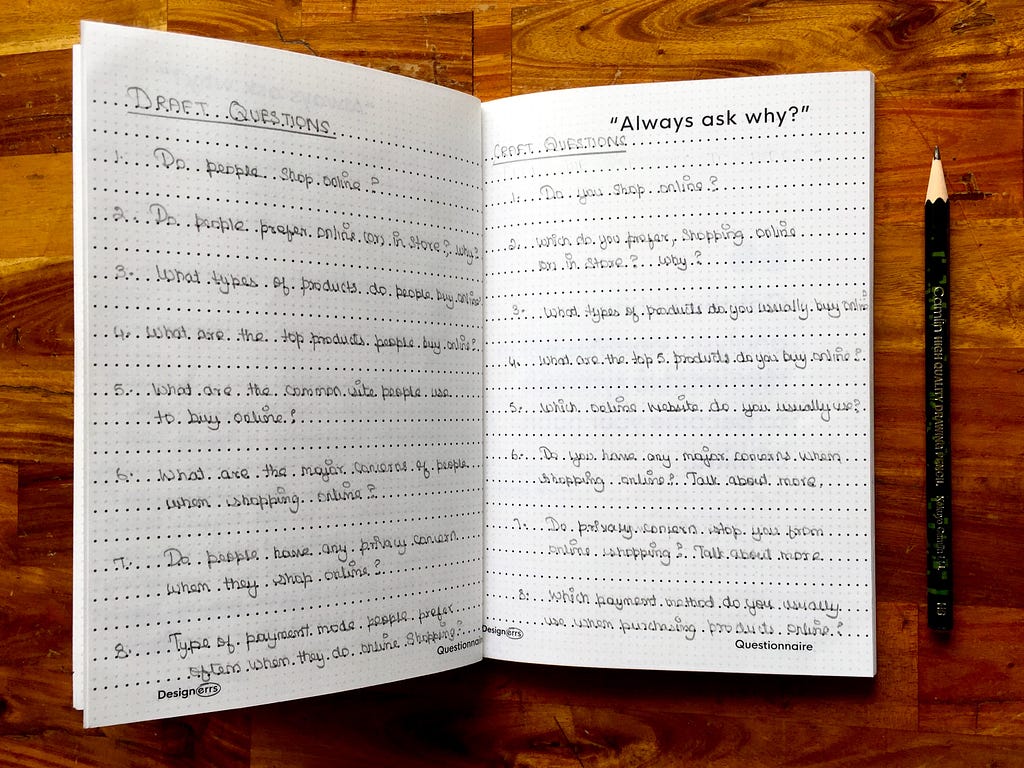 DRAFT QUESTIONS
1. Do people shop online?
2. Do people prefer online (or) in store?, why?
3. What types of products do people buy online
4. What are the top products people buy online?
5. What are the common site people use
to buy online?
6. What are the major concerns of people
when shopping online?
7. Do people have any privacy concern
when they shop online?
8. Type of payment mode people prefer
often when they do online shopping?
Questionnair
Designerrs
"Always ask why?"
DRAFT QUESTIONS
1. Do you shop online?
2. which do you prefer, shopping online
(or) in store? why?
3. what types of products do you usually buy online?
4. what are the top 5 products do you buy online?
5. which online website do you usually use?
6. Do you have any major concerns when
shopping online? Talk about more.
7. Do privacy concern stop you from
online shopping? Talk about more
8. which payment method do you usually
use when purchasing products online?
Designerrs
Questionnaire
Camlin HIGH QUALITY DRAWING PENCIL
HB